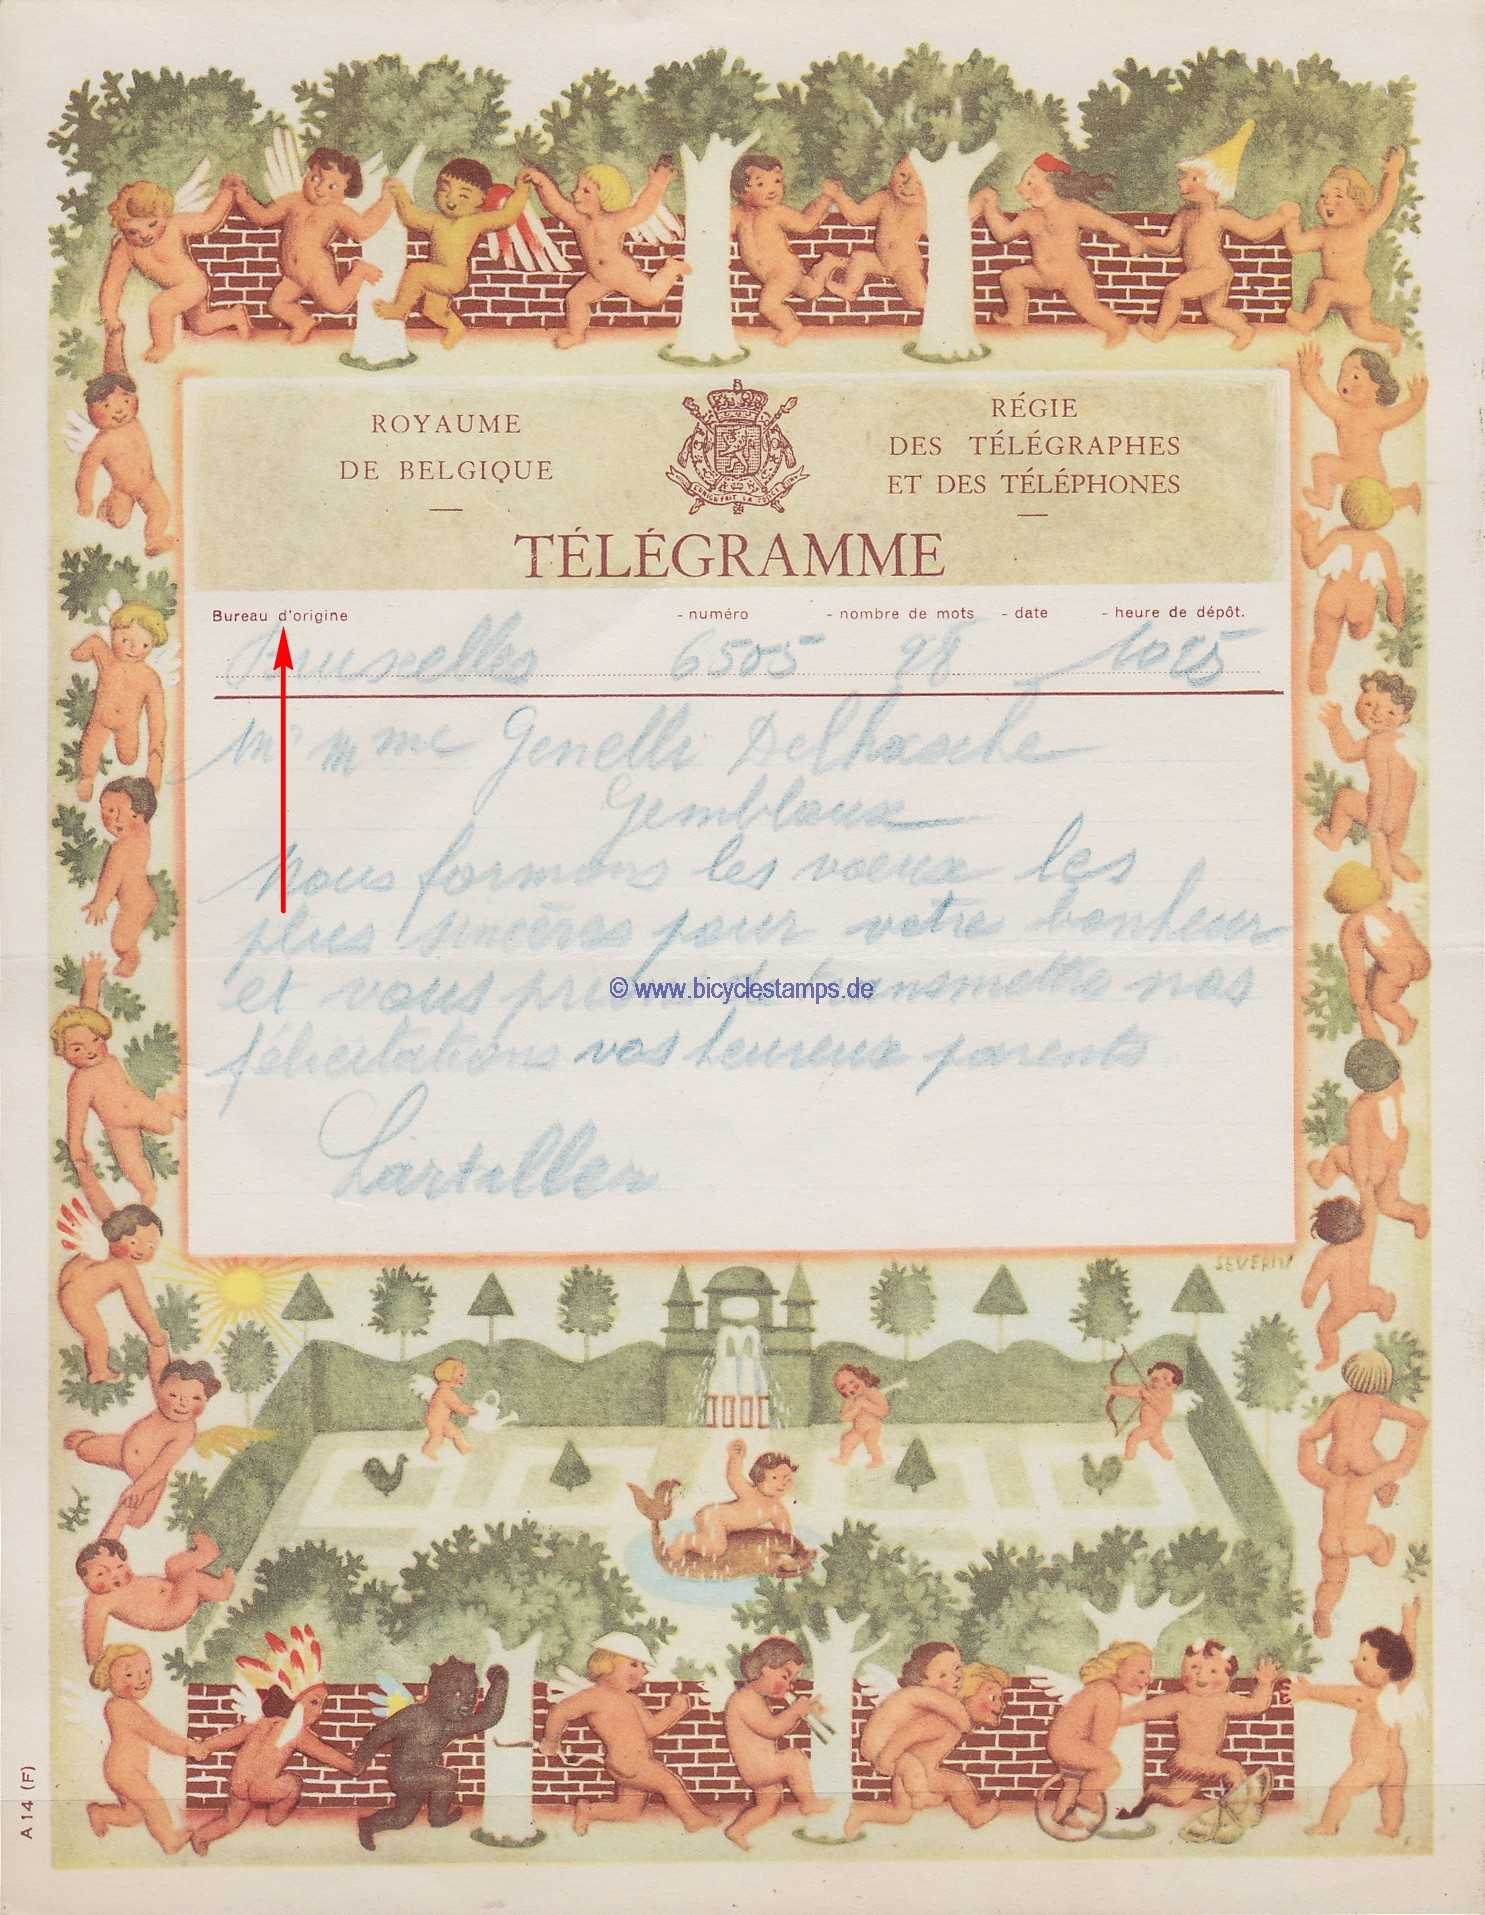 ROYAUME
DE BELGIQUE
RÉGIE
DES TÉLÉGRAPHES
ET DES TÉLÉPHONES
L'UNION FAIT LA FORCE
TÉLÉGRAMME
Bureau d'origine - numéro - nombre de mots - date - heure de dépôt.
Bruxelles 6505 98 1025
Mr Mme Genelli Delhasche
Gembloux
Nous formons les voeux les
plus sincères pour votre bonheur
et vous prions de transmettre nos
félicitations vos heureux parents
© www.bicyclestamps.de
SEVERIN
A 14 (F)